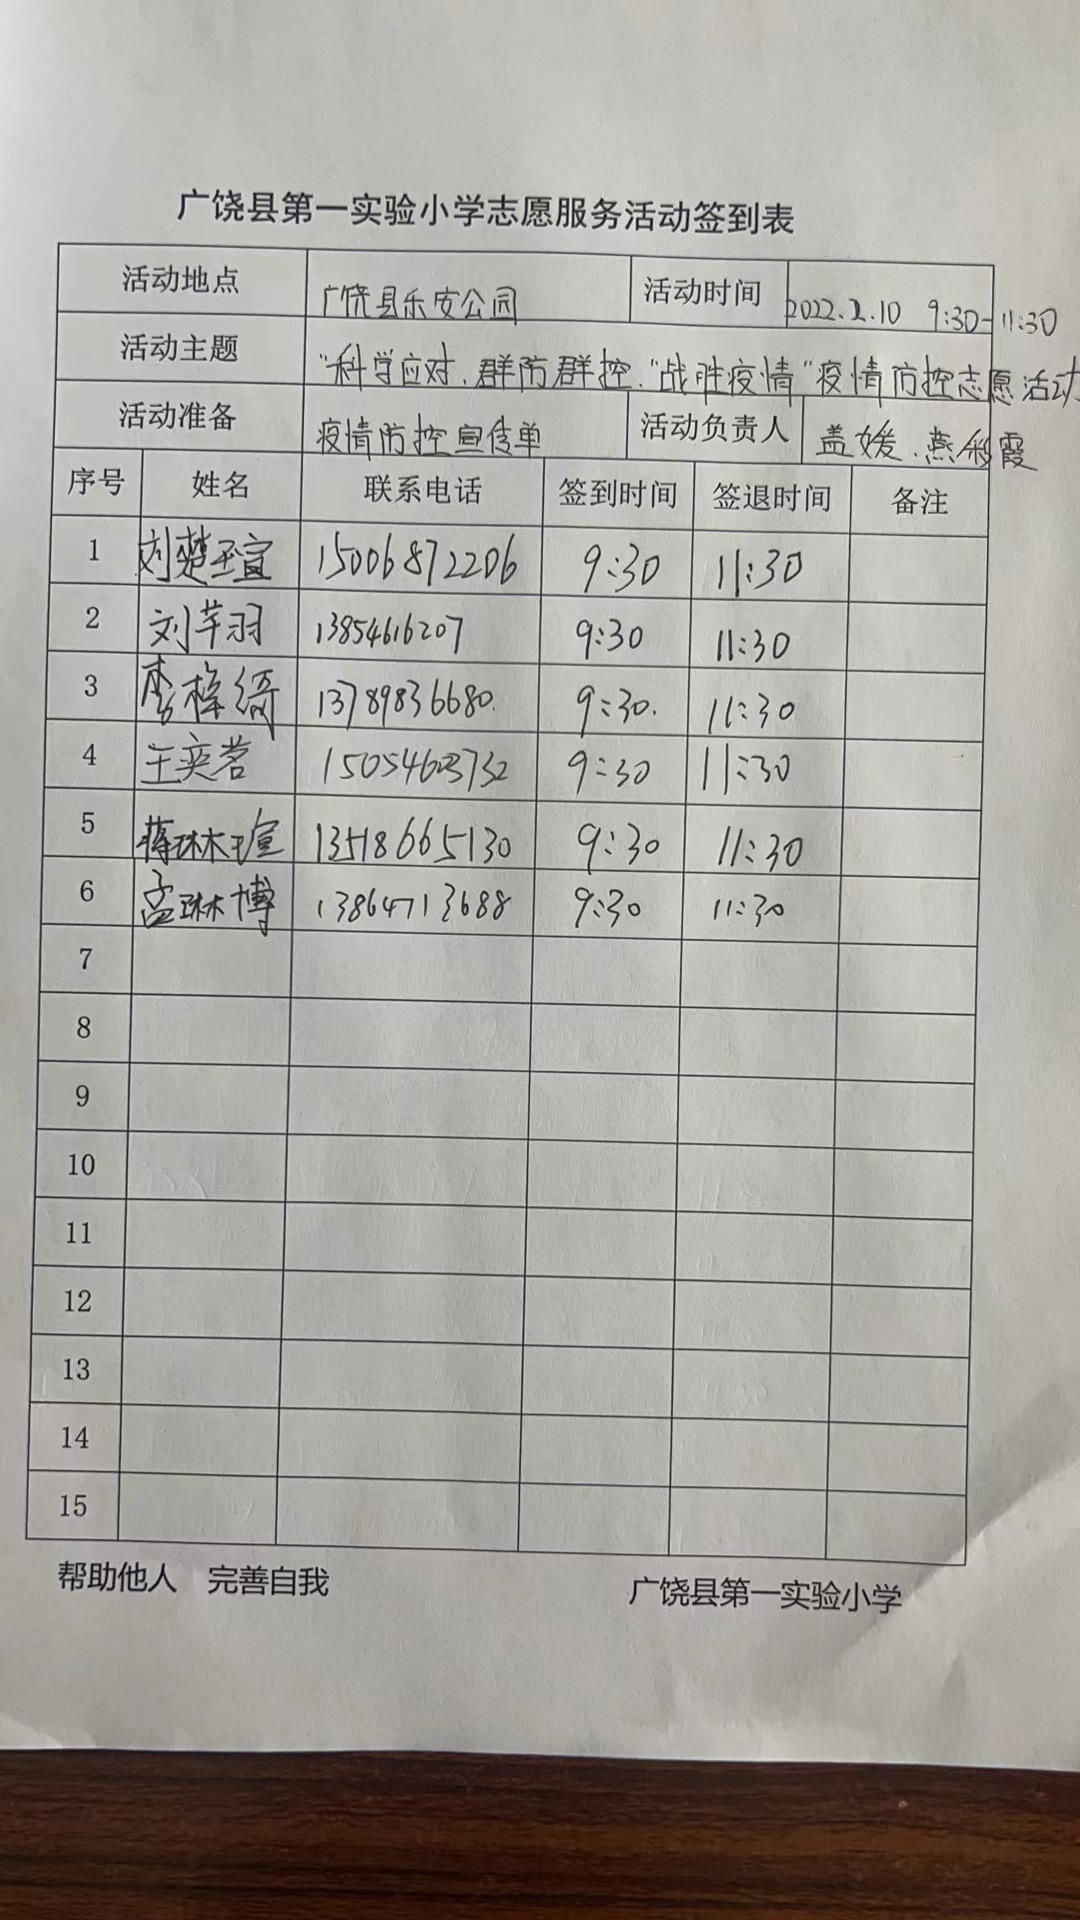 广饶县第一实验小学志愿服务活动签到表
活动地点 广饶县乐安公园 活动时间 2022.2.10 9:30-11:30
活动主题 "科学应对、群防群控、"战胜疫情"疫情防控志愿活动
活动准备 疫情防控宣传单 活动负责人 盖媛、燕彩霞
序号 姓名 联系电话 签到时间 签退时间 备注
1 刘楚瑄 15006872206 9:30 11:30
2 刘芊羽 13854616207 9:30 11:30
3 李梓绮 13789836680. 9:30. 11:30
4 王奕茗 9:30 11:30
5 蒋琳瑄 13518665130 9:30 11:30
6 孟琳博 13864713688 9:30 11:30
7
8
9
10
11
12
13
14
15
帮助他人 完善自我 广饶县第一实验小学